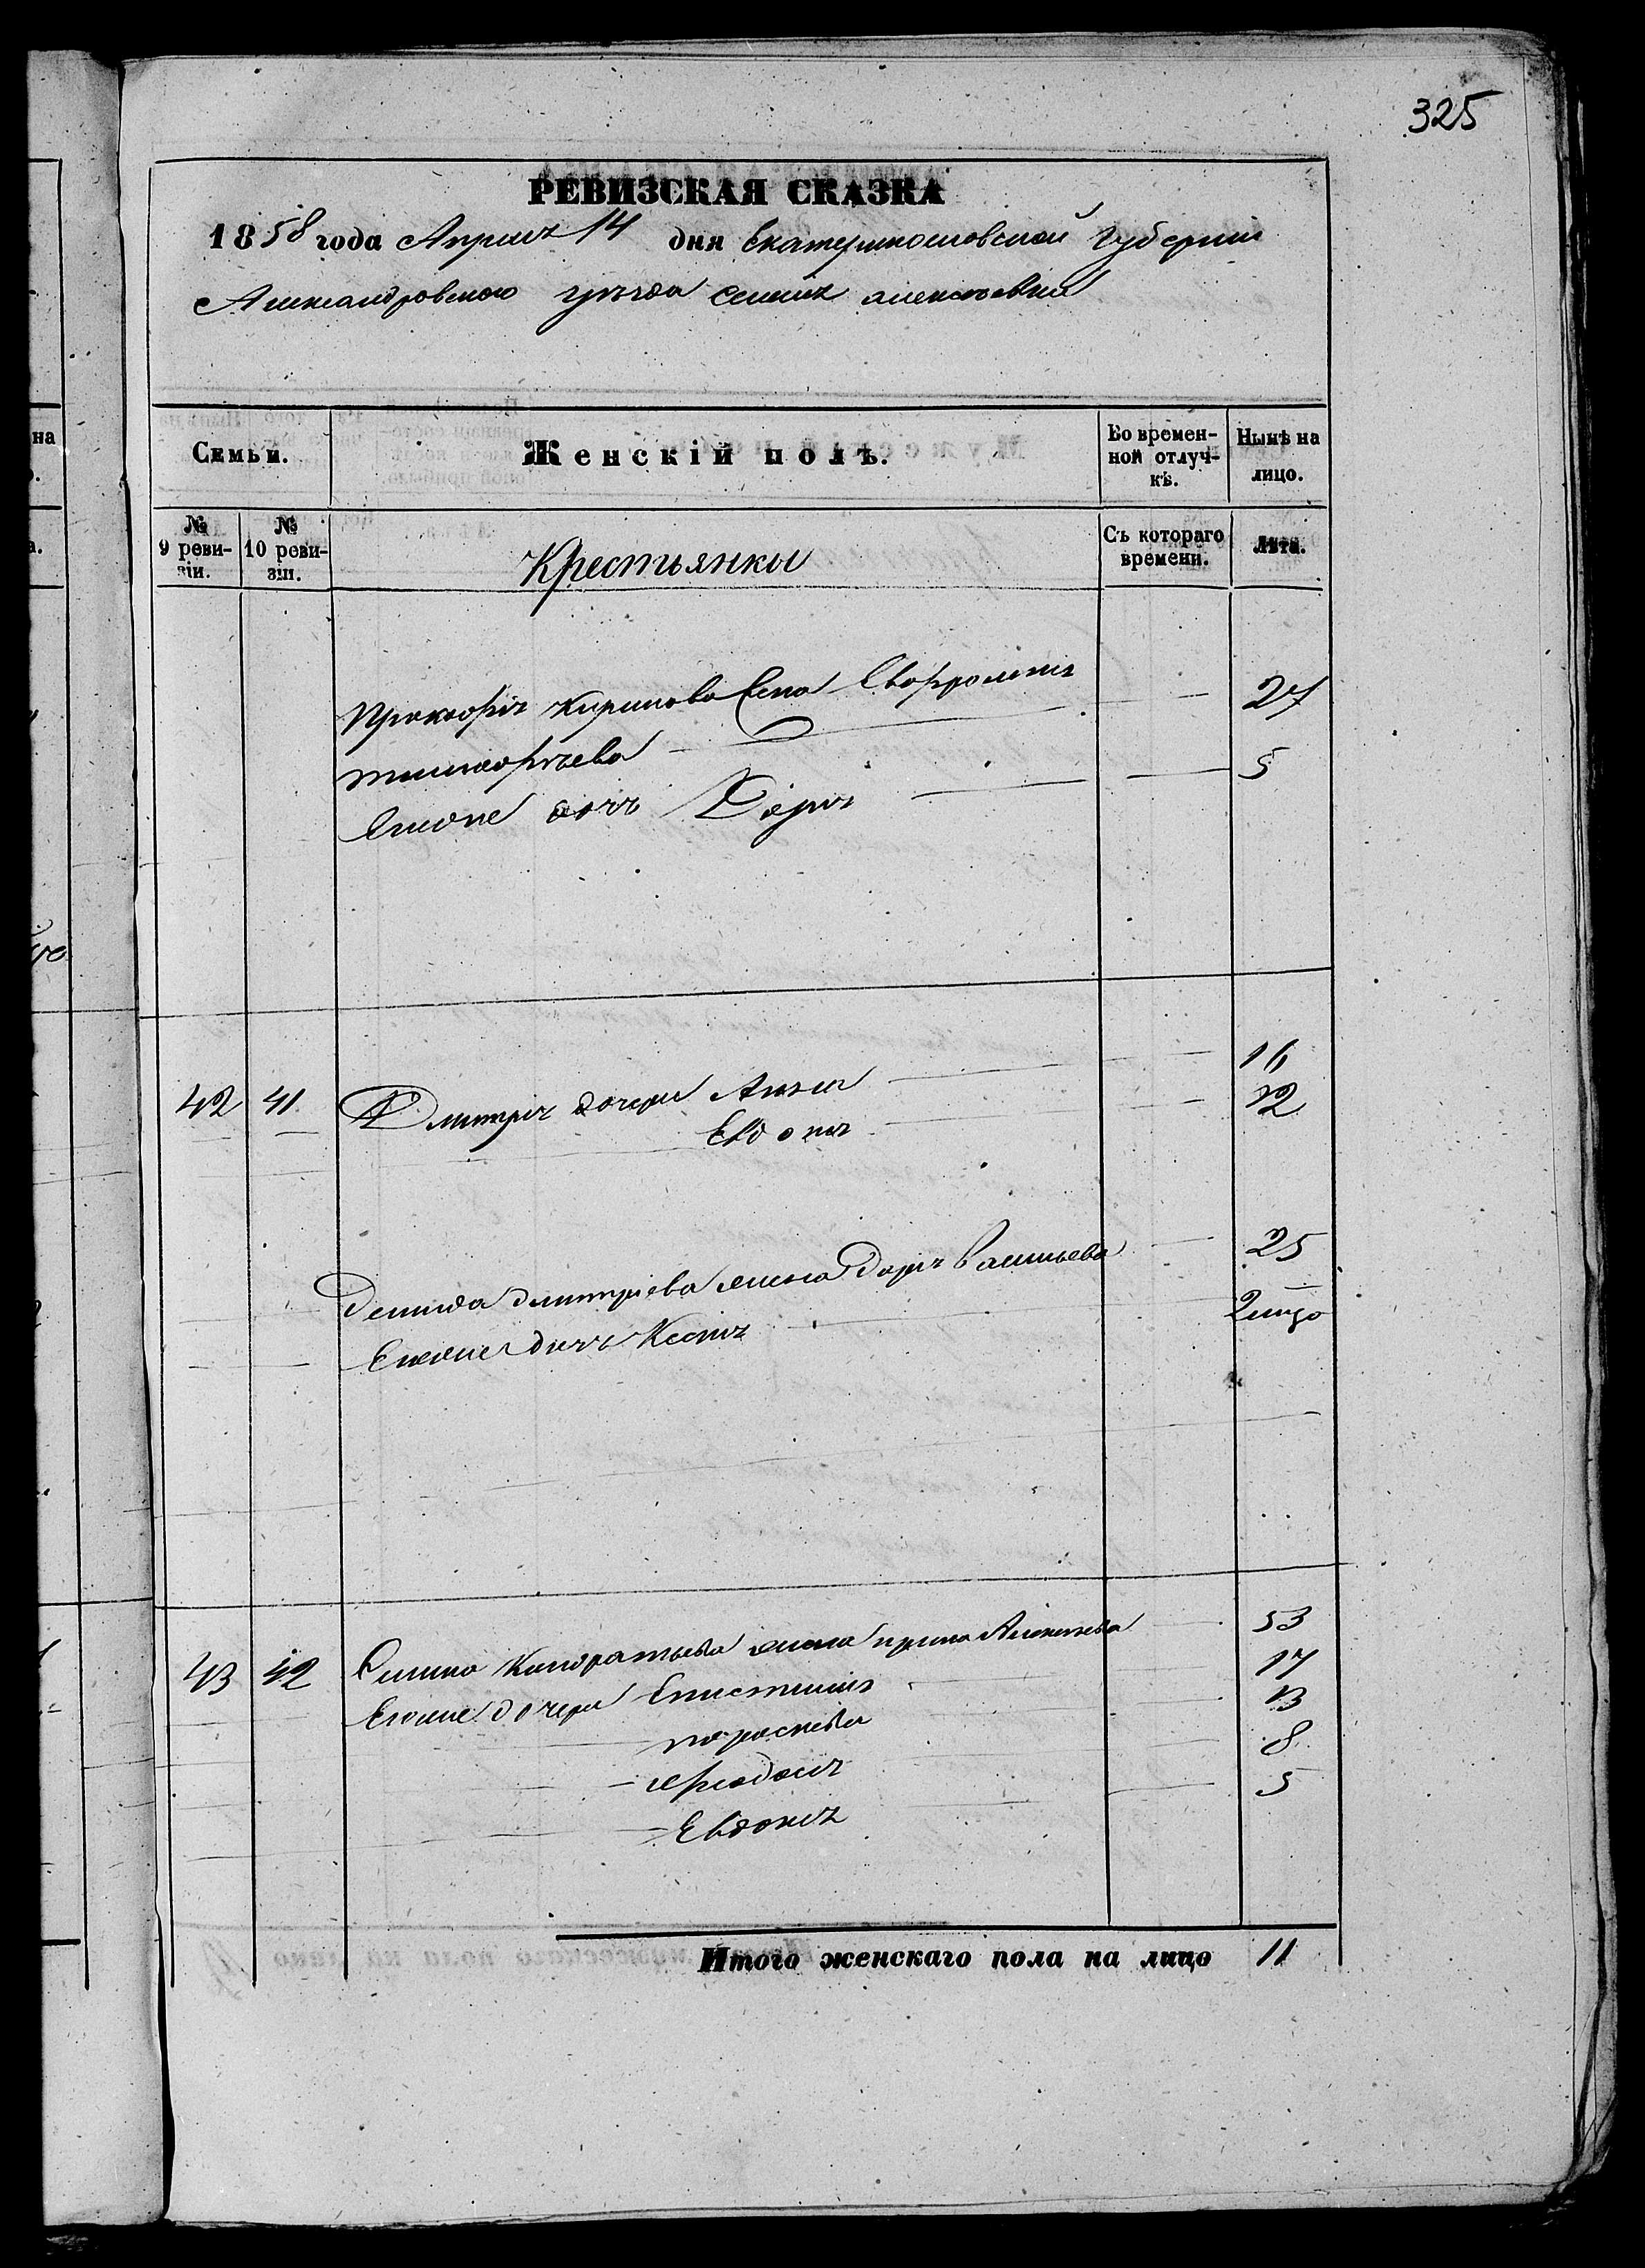 325
РЕВИЗСКАЯ СКАЗКА
1858 года Апреля 14 дня Екатеринославской Губернии
Александровского уѣзда селенія алексѣевки
Семьи. Женскій полъ. Во временной отлучкѣ. Нынѣ на лицо.
№ 9 ревизіи. № 10 ревизіи. Крестьянки Съ котораго времени. Лѣта.
Прокофія Кирилова жена 27
Тимофѣева
Ѣго же дочь Дарія 5
42 41 Дмитрія дочери Анна 16
Евдокія 12
Демида Дмитріева жена Дарія Васильева 25
Его же дочь Ксенія 2
43 42 Кондратьева жена ирина Алексѣева 53
Его же дочери Епистимія 17
параскева 13
Феодосія 8
Евдокія 5
Итого женскаго пола на лицо 11